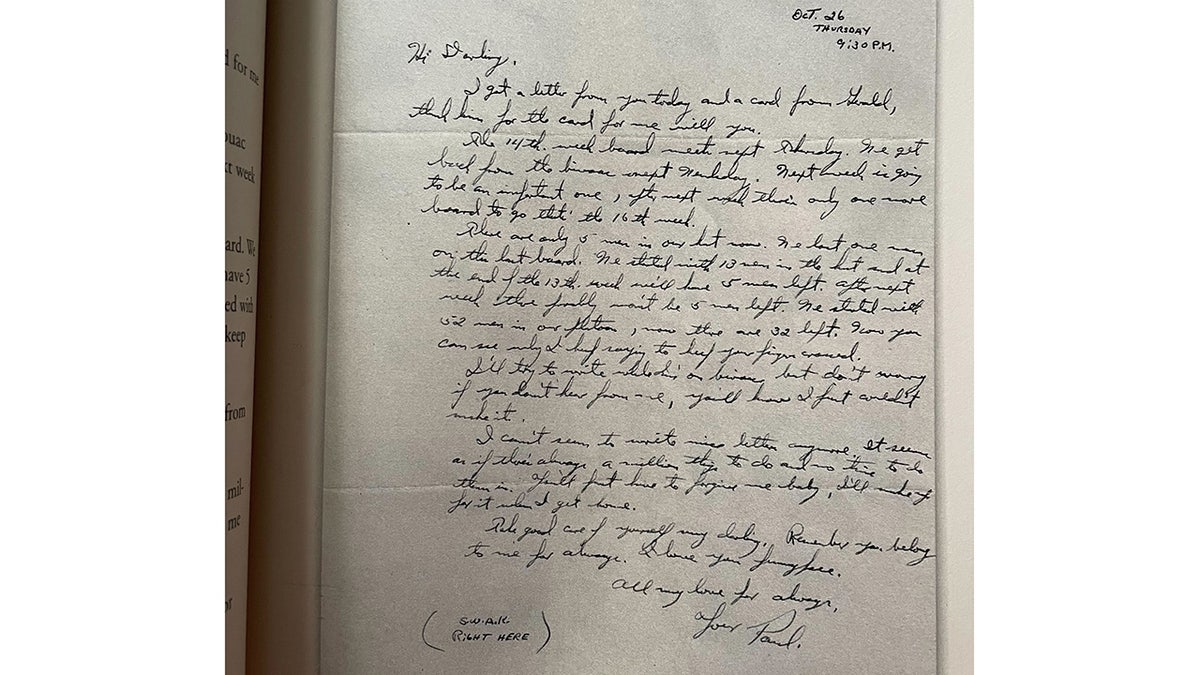 OCT. 26
THURSDAY
9:30 P.M.
Hi Darling,
I got a letter from you today and a card from Gerald,
thank him for the card for me will you.
The 14th. week board meets next Thursday. We get
back from the bivouac next Wednesday. Next week is going
to be an important one, after next week there's only one more
board to go that's the 16th week.
There are only 5 men in our hut now. We lost one man
on the last board. We started with 13 men in the hut and at
the end of the 13th. week we'll have 5 men left. After next
week there probably won't be 5 men left. We started with
52 men in our platoon, now there are 32 left. Now you
can see why I keep saying to keep your fingers crossed.
I'll try to write while I'm on bivouac, but don't worry
if you don't hear from me, you'll know I just couldn't
make it.
I can't seem to write nice letters anymore. It seems
as if there's always a million things to do and no time to do
them in. You'll just have to forgive me baby, I'll make up
for it when I get home.
Take good care of yourself my darling. Remember you belong
to me for always. I love you funnyface.
All my love for always,
Your Paul.
(S.W.A.K.
RIGHT HERE)
d for me
ouac
xt week
ard. We
have 5
ed with
keep
from
mil-
me